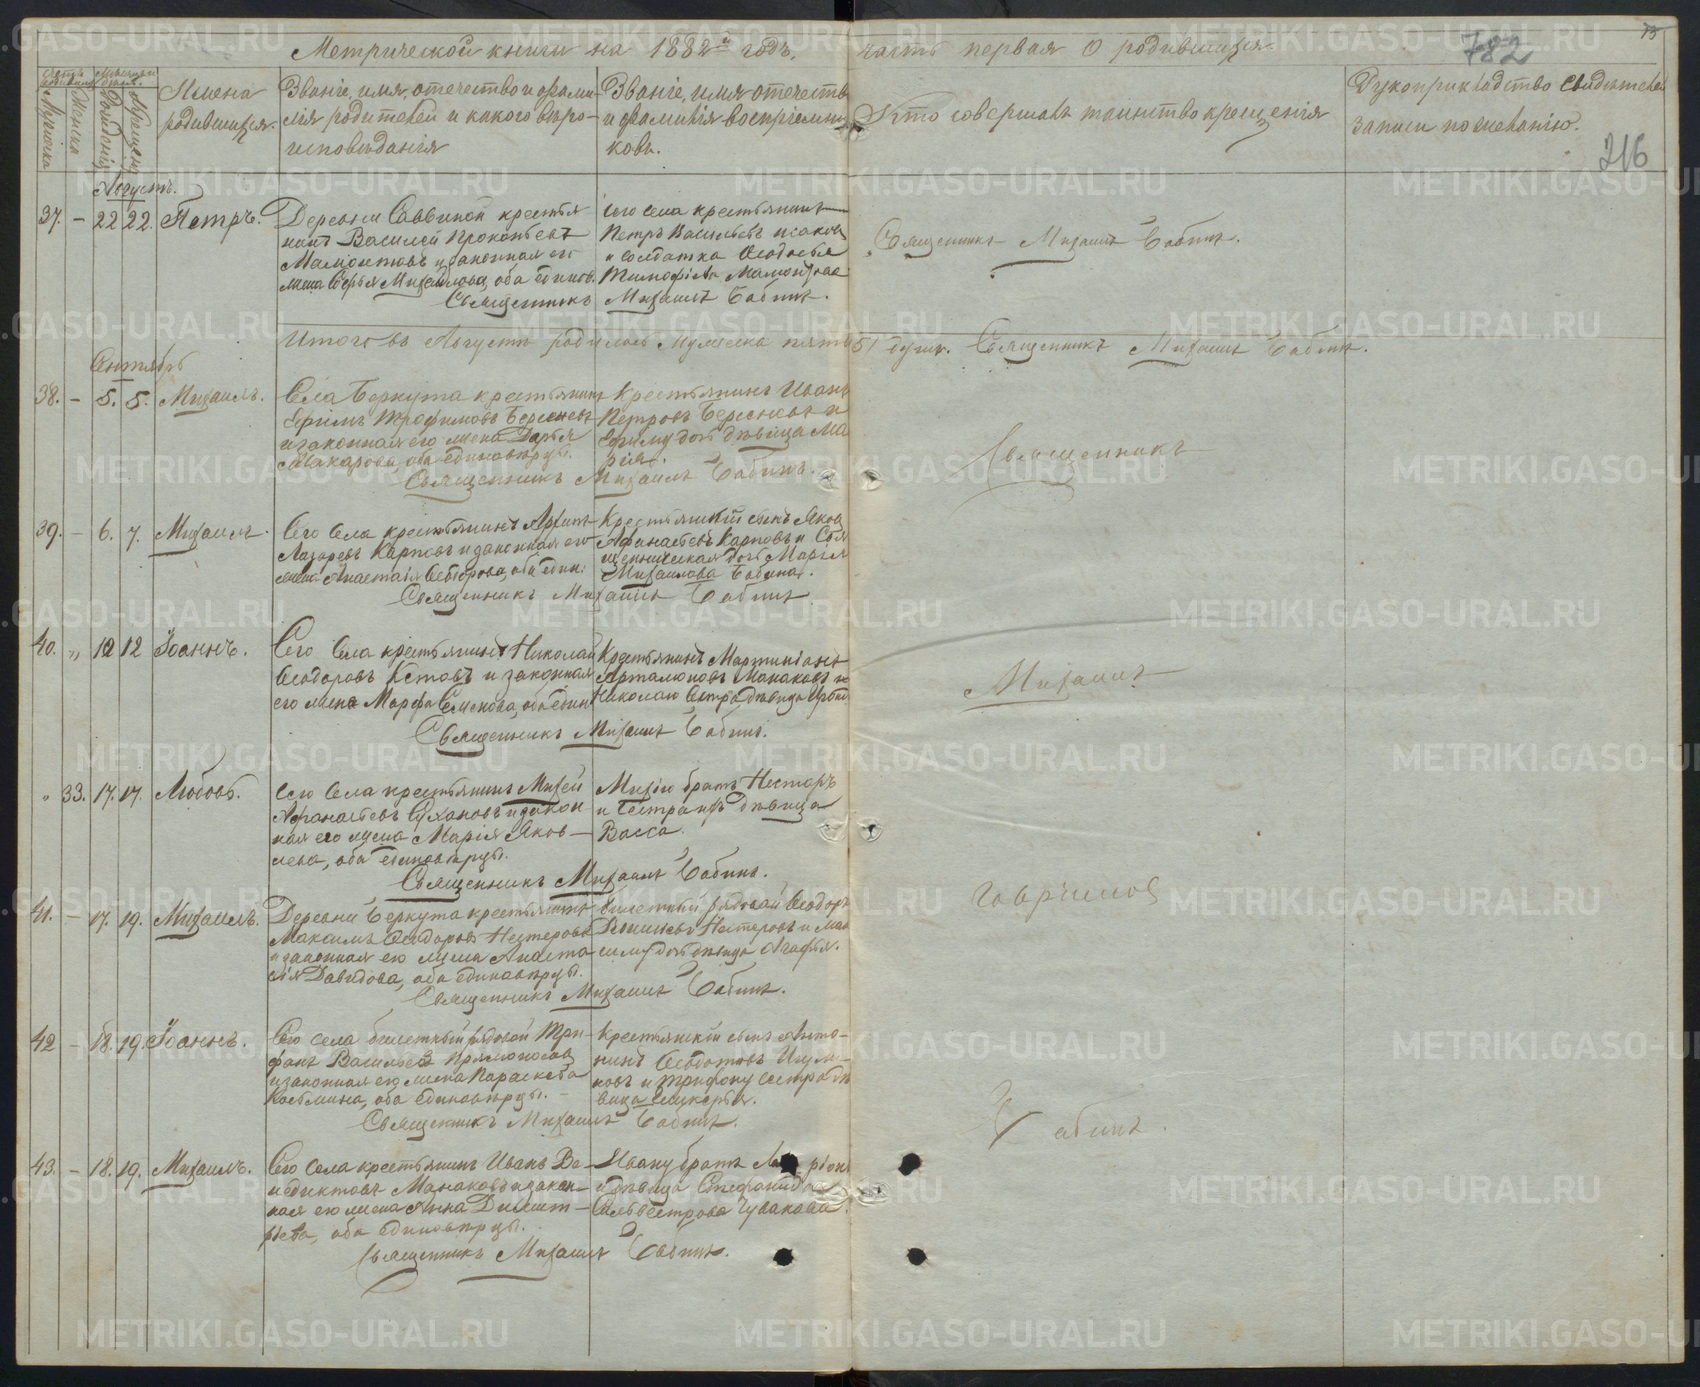 Метрической книги на 1882й годъ, часть первая о родившихся.
73
782
216
Счетъ родившихся
Мужеска
Женска
Мѣсяцъ и день
Рожденія
Крещенія
Имена
родившихся.
Званіе, имя, отечество и фами-
лія родителей и какого вѣро-
исповѣданія
Званіе, имя отечество
и фамилія воспріемни-
ковъ.
Кто совершалъ таинство крещенія
Рукоприкладство свидѣтелей
записи по желанію.
Августъ.
37. – 22 22. Петръ.
Деревни Саввиной крестья
нинъ Василей Прокопьевъ
Мамонтовъ и законная его
жена Софья Михайлова, оба единов.
Сего села крестьянинъ
Петръ Васильевъ Исаковъ
и солдатка Ѳеодосья
Тимофѣева Мамонтова
Священникъ Михаилъ Бабинъ.
Священникъ Михаилъ Бабинъ.
Итого въ Августѣ родилось Мужеска пять 5/ душъ. Священникъ Михаилъ Бабинъ.
Сентябрь
38. – 5. 5. Михаилъ.
Села Беркута крестьянинъ
Ефимъ Трофимовъ Береснев
и законная его жена Дарья
Макарова, оба единовѣрцы.
Крестьянинъ Иванъ
Петровъ Береснев и
Ефиму дочь дѣвица Ма
рія.
Священникъ Михаилъ Бабинъ.
Священникъ
39. – 6. 7. Михаилъ.
Сего села крестьянинъ Архипъ
Лазаревъ Карповъ и законная его
жена Анастасія Ѳеодорова, оба един:
Крестьянскій сынъ Яковъ
Афанасьевъ Карповъ и Свя
щенническая дочь Марія
Михаилова Бабина.
Священникъ Михаилъ Бабинъ
40. „ 12 12 Іоаннъ.
Сего села крестьянинъ Николай
Ѳеодоровъ Кстовъ и законная
его жена Марфа Семенова, оба един
Крестьянинъ Мартиніанъ
Арталионовъ Манаковъ и
Николаю сестра дѣвица
Священникъ Михаилъ Бабинъ.
Михаилъ
„ 33. 17. 17. Любовь.
Сего села крестьянинъ Михей
Афанасьевъ Сухановъ и закон
ная его жена Марія Яков-
лева, оба единовѣрцы.
Михѣю братъ Несторъ
и сестра ихъ дѣвица
Васса.
Священникъ Михаилъ Бабинъ.
41. – 17. 19. Михаилъ.
Деревни Беркута крестьянинъ
Максимъ Ѳеодоровъ Нестеровъ
и законная его жена Анаста
сія Давидова, оба единовѣрцы.
Билетный рядовой Ѳеодоръ
Нестеровъ и Мак
симу дочь дѣвица Агафья.
Священникъ Михаилъ Бабинъ.
Гавриловъ
42 – 18. 19. Іоаннъ.
Сего села билетный рядовой Три-
фонъ Васильевъ Прямоносовъ
и законная его жена Параскева
Косьмина, оба единовѣрцы.
Крестьянскій сынъ Анто-
нинъ Ѳедотовъ
и Трифону сестра дѣ
вица Гликерья.
Священникъ Михаилъ Бабинъ.
Бабинъ.
43. – 18. 19. Михаилъ.
Сего села крестьянинъ Иванъ Ве-
недиктовъ Манаковъ и закон-
ная его жена Анна Димит-
рьева, оба единовѣрцы.
Ивану братъ
и дѣвица Стефанида
Сильвестрова Чувакова.
Священникъ Михаилъ Бабинъ.
METRIKI.GASO-URAL.RU